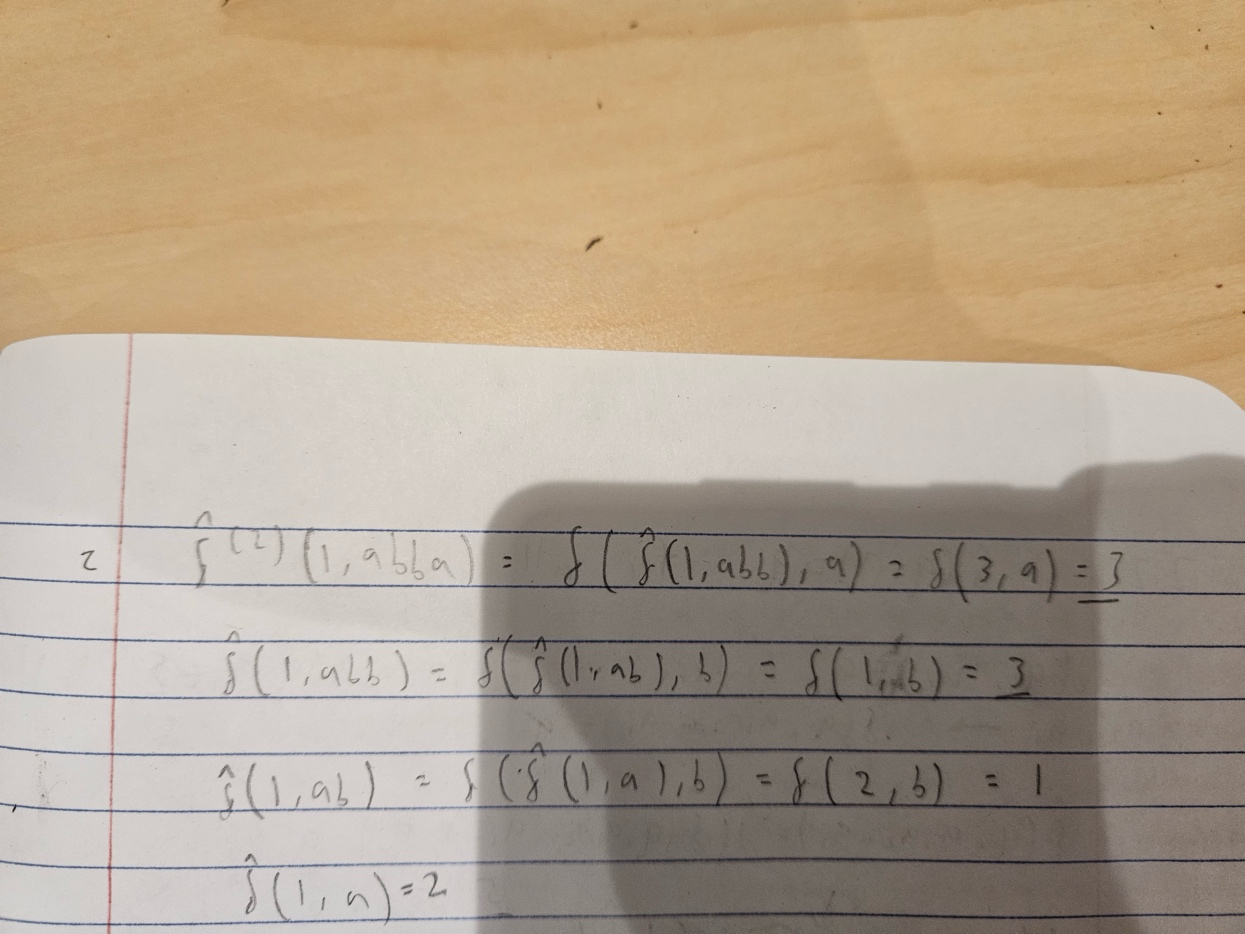 2 δ̂^(2) (1, abba) = δ( δ̂(1, abb), a) = δ(3, a) = 3
δ̂(1, abb) = δ( δ̂(1, ab), b) = δ(1, b) = 3
δ̂(1, ab) = δ( δ̂(1, a), b) = δ(2, b) = 1
δ̂(1, a) = 2